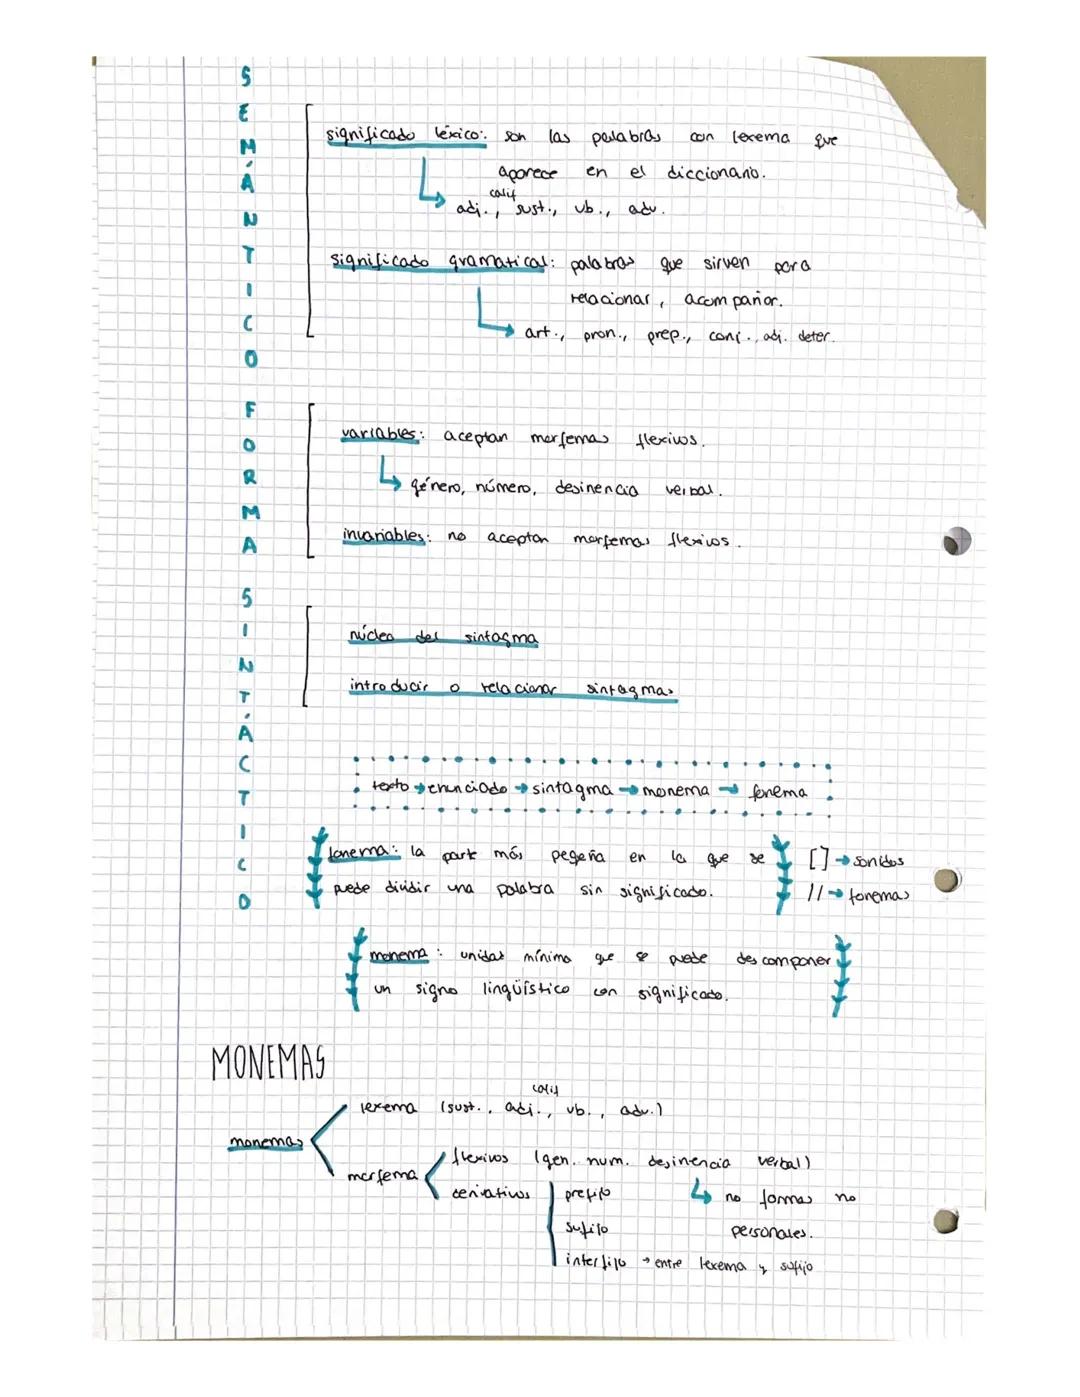 SEMÁNTICO
significado léxico: son las palabras con lexema que
aparece en el diccionario.
calif
adj., sust., vb., adv.
significado gramatical: palabras que sirven para
relacionar, acompañar.
art., pron., prep., conj., adj. deter.
FORMA
variables: aceptan morfemas flexivos.
género, número, desinencia verbal.
invariables: no aceptan morfemas flexivos.
SINTÁCTICO
núcleo del sintagma
introducir o relacionar sintagmas
texto → enunciado → sintagma → monema → fonema
fonema: la parte más pegeña en la que se
puede dividir una palabra sin significado.
[] → sonidos
// → fonemas
monema: unidad mínima que se puede descomponer
un signo lingüístico con significado.
MONEMAS
calif
lexema (sust., adj., vb., adv.)
monemas
flexivos (gen. num. desinencia verbal)
morfema
derivativos prefijo
no formas no
sufijo
personales.
interfijo → entre lexema y sufijo